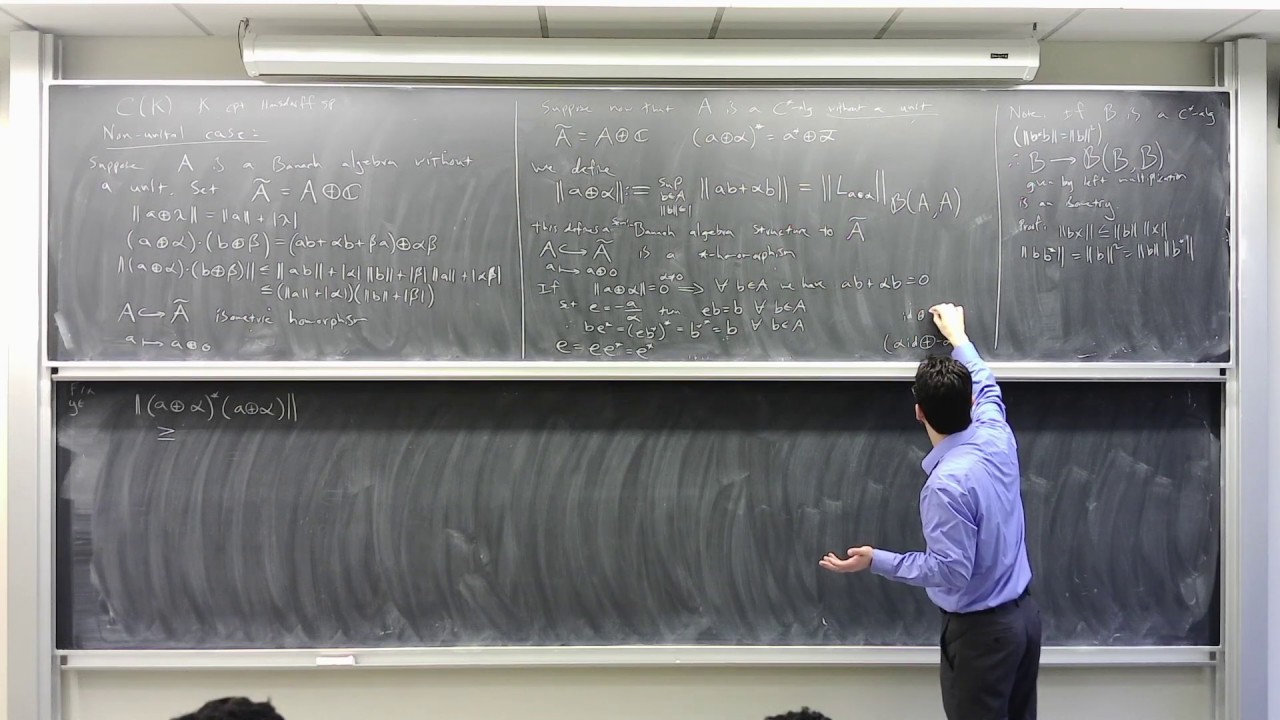 C(K) K cpt Hausdorff sp
Non-unital case:
Suppose A is a Banach algebra without
a unit. Set Ã = A⊕ℂ
||a⊕λ|| = ||a|| + |λ|
(a⊕α)·(b⊕β) = (ab+αb+βa)⊕αβ
||(a⊕α)·(b⊕β)|| ≤ ||ab||+|α| ||b||+|β| ||a||+|αβ|
≤ (||a||+|α|)(||b||+|β|)
A ↪ Ã isometric homomorphism
a ↦ a⊕0
Suppose now that A is a C*-alg without a unit
Ã = A⊕ℂ (a⊕α)* = a*⊕ᾱ
We define
||a⊕α|| := sup b∈A ||b||≤1 ||ab+αb|| = ||L_{a⊕α}||_{B(A,A)}
this defines a semi-Banach algebra structure to Ã
A ↪ Ã is a *-homomorphism
a ↦ a⊕0
If ||a⊕α||=0 α≠0 ⟹ ∀ b∈A we have ab+αb=0
Set e = -a/α then eb=b ∀ b∈A
∴ be* = (eb*)* = b** = b ∀ b∈A
e = ee* = e*
id ⊕
(αid⊕-α
Note: if B is a C*-alg
(||b*b||=||b||²)
∴ B → B(B,B)
given by left multiplication
is an isometry
Proof: ||bx|| ≤ ||b|| ||x||
||bb*|| = ||b||² = ||b|| ||b*||
Fix
||(a⊕α)*(a⊕α)||
≥